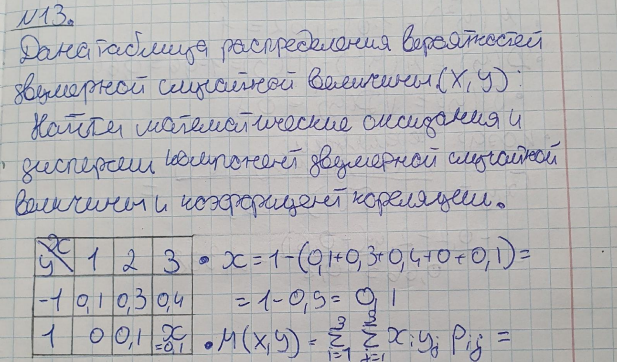 N13.
Дана таблица распределения вероятностей
двумерной случайной величины (X, Y):
Найти математические ожидания и
дисперсии компонент двумерной случайной
величины и коэффициент корреляции.
x
y 1 2 3 • x = 1-(0,1+0,3+0,4+0+0,1)=
-1 0,1 0,3 0,4 = 1-0,9 = 0,1
1 0 0,1 x =0,1 • M(X,Y) = 3 Σ i=1 2 Σ j=1 x i y j p ij =